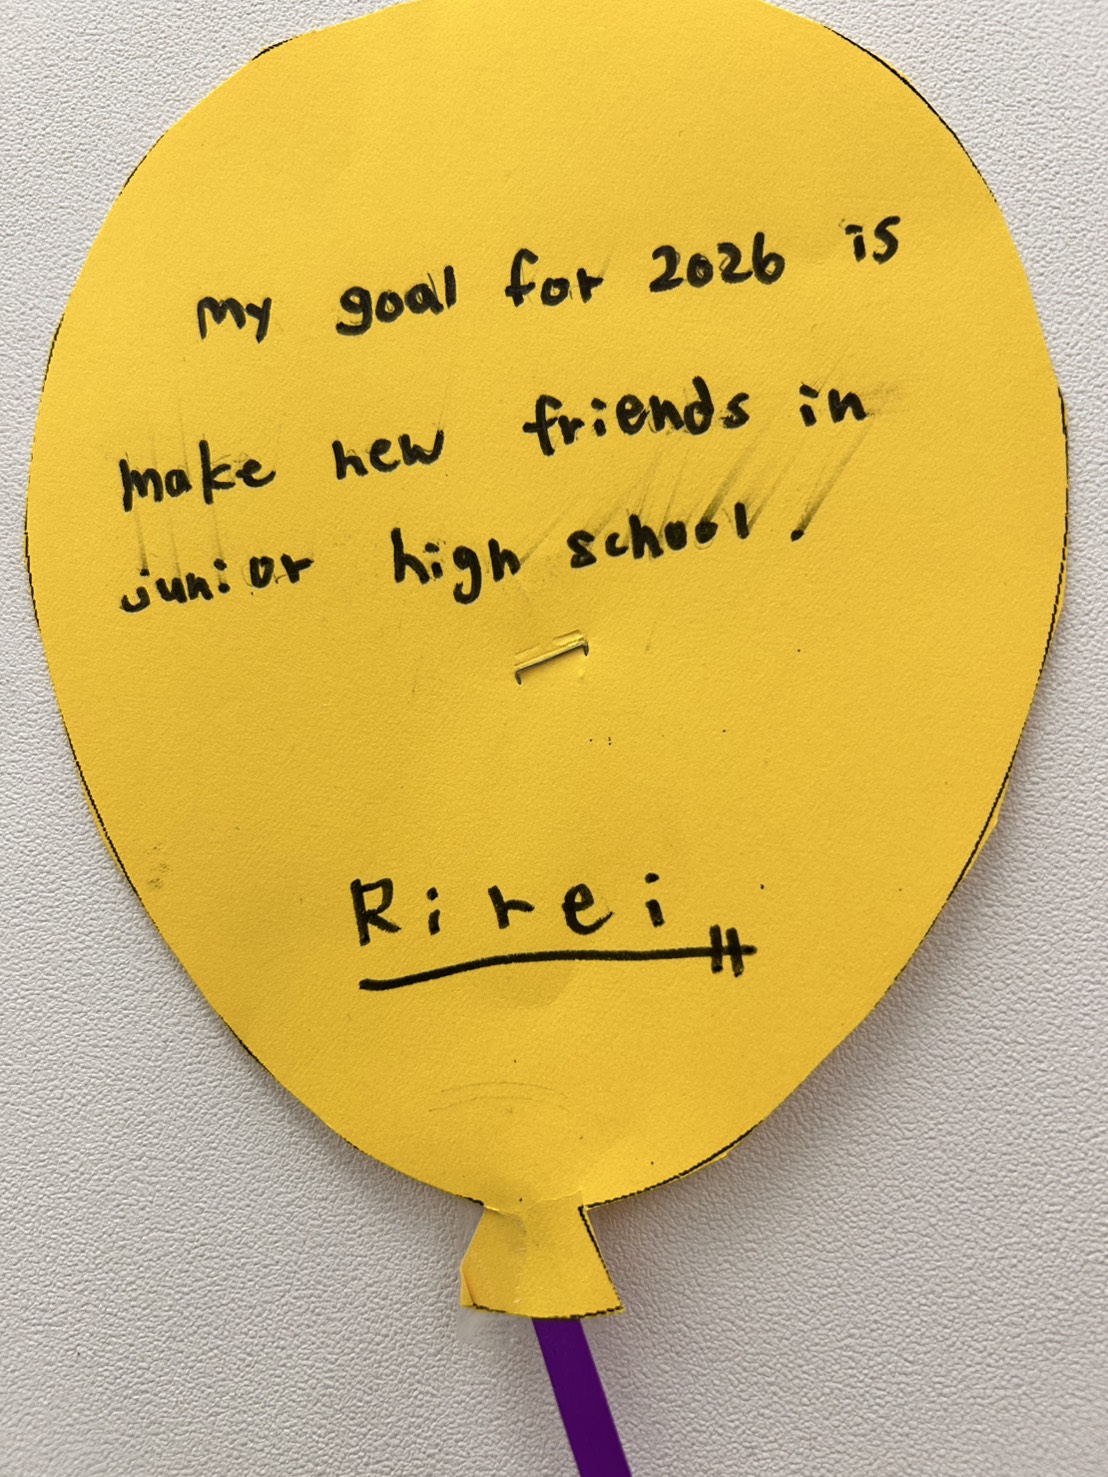 My goal for 2026 is
make new friends in
junior high school.
Rirei